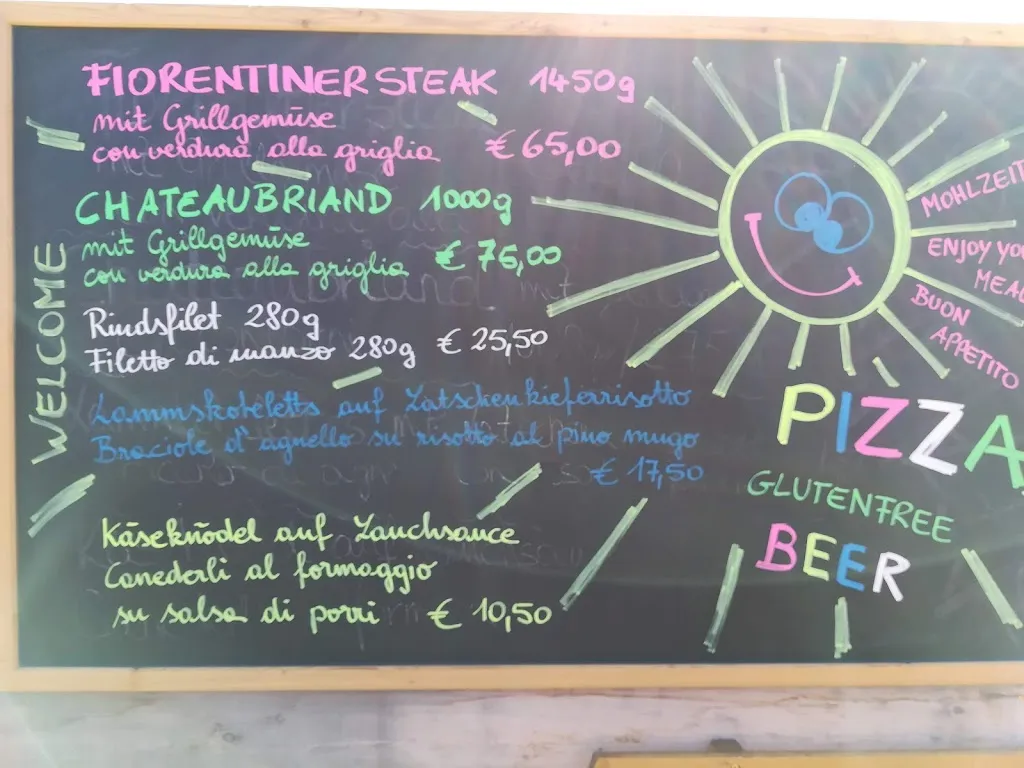 WELCOME
FIORENTINER STEAK 1450g
mit Grillgemüse
con verdura alla griglia € 65,00
CHATEAUBRIAND 1000g
mit Grillgemüse
con verdura alla griglia € 76,00
Rindsfilet 280g
Filetto di manzo 280g € 25,50
Lammskoteletts auf Latschenkieferrisotto
Braciole d'agnello su risotto al pino mugo
€ 17,50
Käseknödel auf Lauchsauce
Canederli al formaggio
su salsa di porri € 10,50
MOHLZEIT
ENJOY YOU
MEAL
BUON
APPETITO
PIZZA
GLUTENFREE
BEER